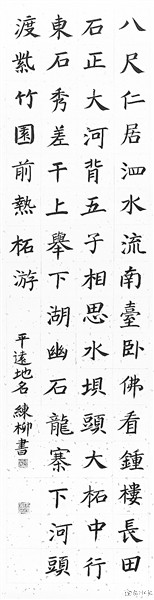 八尺仁居泗水流南臺卧佛看鍾樓長田
石正大河背五子相思水垻頭大柘中行
東石秀差干上舉下湖幽石龍寨下河頭
渡紫竹園前熱柘游
平遠地名 練柳書